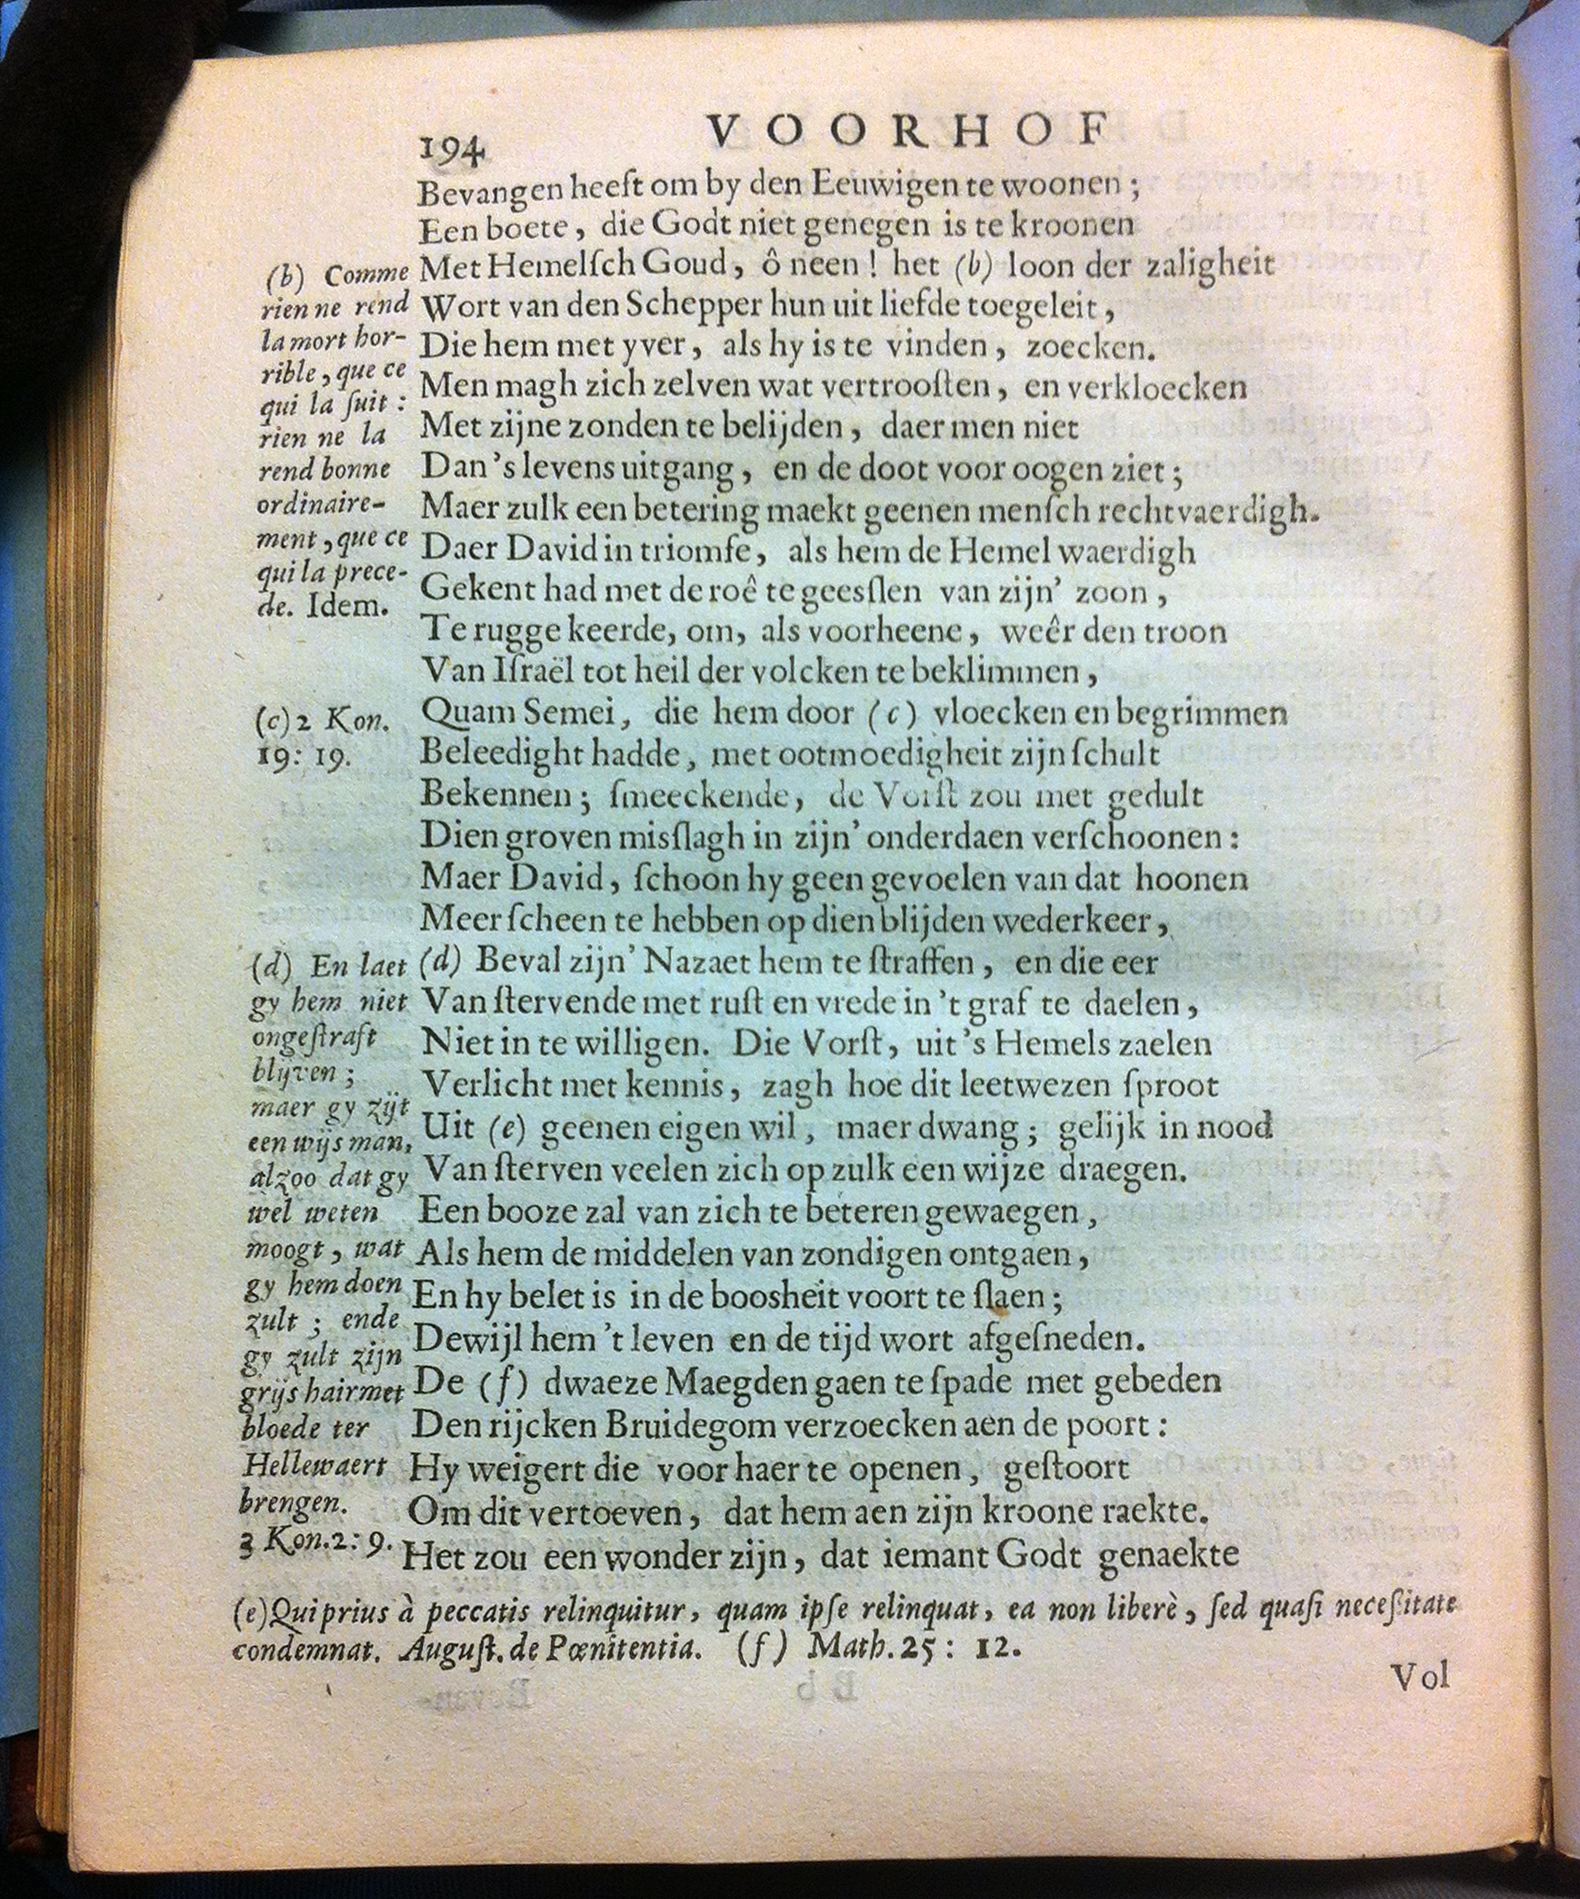 194
VOORHOF
Bevangen heeft om by den Eeuwigen te woonen ;
Een boete, die Godt niet genegen is te kroonen
Met Hemelſch Goud, ô neen ! het (b) loon der zaligheit
Wort van den Schepper hun uit liefde toegeleit,
Die hem met yver, als hy is te vinden, zoecken.
Men magh zich zelven wat vertrooſten, en verkloecken
Met zijne zonden te belijden, daer men niet
Dan 's levens uitgang, en de doot voor oogen ziet ;
Maer zulk een betering maekt geenen menſch rechtvaerdigh.
Daer David in triomfe, als hem de Hemel waerdigh
Gekent had met de roê te geesſlen van zijn' zoon,
Te rugge keerde, om, als voorheene, weêr den troon
Van Iſraël tot heil der volcken te beklimmen,
Quam Semei, die hem door (c) vloecken en begrimmen
Beleedight hadde, met ootmoedigheit zijn ſchult
Bekennen ; ſmeeckende, de Vorſt zou met gedult
Dien groven misſlagh in zijn' onderdaen verſchoonen :
Maer David, ſchoon hy geen gevoelen van dat hoonen
Meer ſcheen te hebben op dien blijden wederkeer,
(d) Beval zijn' Nazaet hem te ſtraffen, en die eer
Van ſtervende met ruſt en vrede in 't graf te daelen,
Niet in te willigen. Die Vorſt, uit 's Hemels zaelen
Verlicht met kennis, zagh hoe dit leetwezen ſproot
Uit (e) geenen eigen wil, maer dwang ; gelijk in nood
Van ſterven veelen zich op zulk een wijze draegen.
Een booze zal van zich te beteren gewaegen,
Als hem de middelen van zondigen ontgaen,
En hy belet is in de boosheit voort te ſlaen ;
Dewijl hem 't leven en de tijd wort afgeſneden.
De (f) dwaeze Maegden gaen te ſpade met gebeden
Den rijcken Bruidegom verzoecken aen de poort :
Hy weigert die voor haer te openen, geſtoort
Om dit vertoeven, dat hem aen zijn kroone raekte.
Het zou een wonder zijn, dat iemant Godt genaekte
(b) Comme
rien ne rend
la mort hor-
rible, que ce
qui la ſuit :
rien ne la
rend bonne
ordinaire-
ment, que ce
qui la prece-
de. Idem.
(c) 2 Kon.
19: 19.
(d) En laet
gy hem niet
ongeſtraft
blijven ;
maer gy zijt
een wijs man,
alzoo dat gy
wel weten
moogt, wat
gy hem doen
zult ; ende
gy zult zijn
grijs hair met
bloede ter
Hellewaert
brengen.
3 Kon. 2: 9.
(e) Qui prius à peccatis relinquitur, quam ipſe relinquat, ea non liberè, ſed quaſi neceſſitate
condemnat. Auguſt. de Pœnitentia. (f) Math. 25 : 12.
Vol